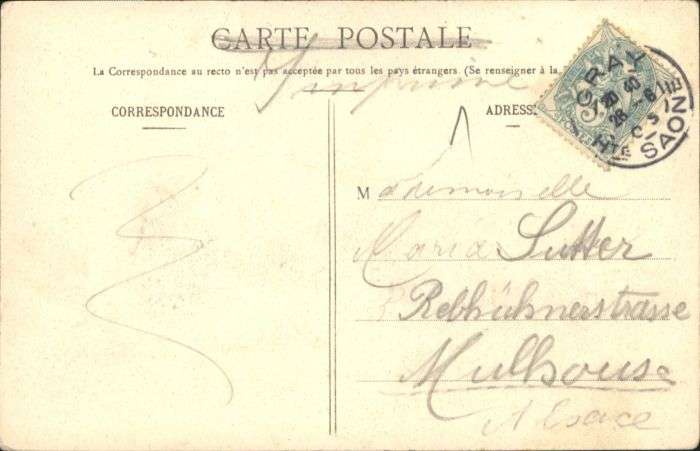 CARTE POSTALE
La Correspondance au recto n'est pas acceptée par tous les pays étrangers. (Se renseigner à la
Imprimé
CORRESPONDANCE
ADRESSE
GRAY
HTE SAONE
Mademoiselle
Maria Sutter
Rebhühnerstrasse
Mulhouse
Alsace